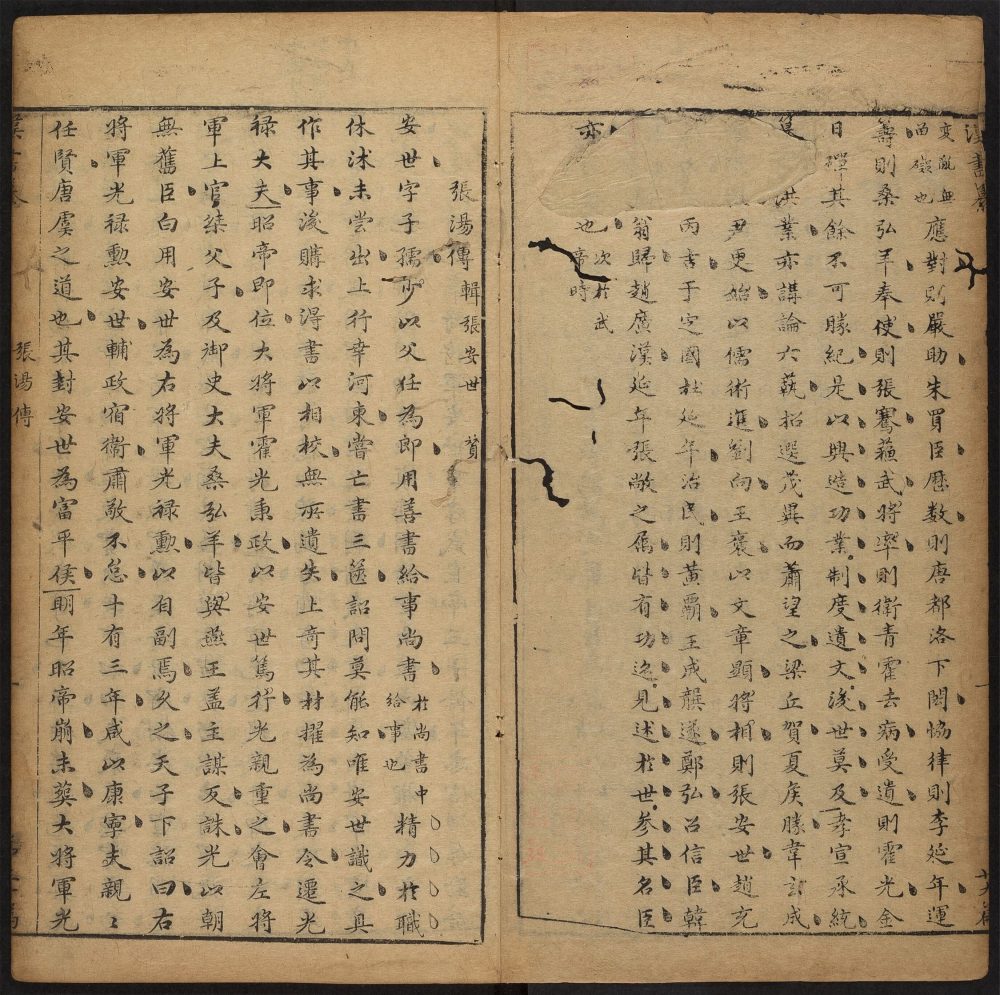 漢書
變亂無留礙也
應對則嚴助朱買臣歷数則唐都洛下閎恊律則李延年運
籌則桑弘羊奉使則張騫蘇武將率則衛青霍去病受遺則霍光金
日磾其餘不可勝紀是以興造功業制度遺文後世莫及孝宣承統
洪業亦講論六藝招選茂異而蕭望之梁丘賀夏侯勝韋玄成
尹更始以儒術進劉向王褒以文章顯將相則張安世趙充
丙吉于定國杜延年治民則黃霸王成龔遂鄭弘召信臣韓
翁歸趙廣漢延年張敞之屬皆有功迹見述於世參其名臣
亦
也
次於武帝時
張湯傳
輯張安世
賀
安世字子孺少以父任為郎用善書給事尚書
於尚書中給事也
精力於職
休沐未嘗出上行幸河東嘗亡書三篋詔問莫能知唯安世識之具
作其事後購求得書以相校無所遺失上奇其材擢為尚書令遷光
禄大夫昭帝即位大將軍霍光秉政以安世篤行光親重之會左將
軍上官桀父子及御史大夫桑弘羊皆與燕王盖主謀反誅光以朝
無舊臣白用安世為右將軍光禄勳以自副焉久之天子下詔曰右
將軍光禄勳安世輔政宿衛肅敬不怠十有三年咸以康寧夫親〻
任賢唐虞之道也其封安世為富平侯明年昭帝崩未葬大將軍光
張湯傳
一